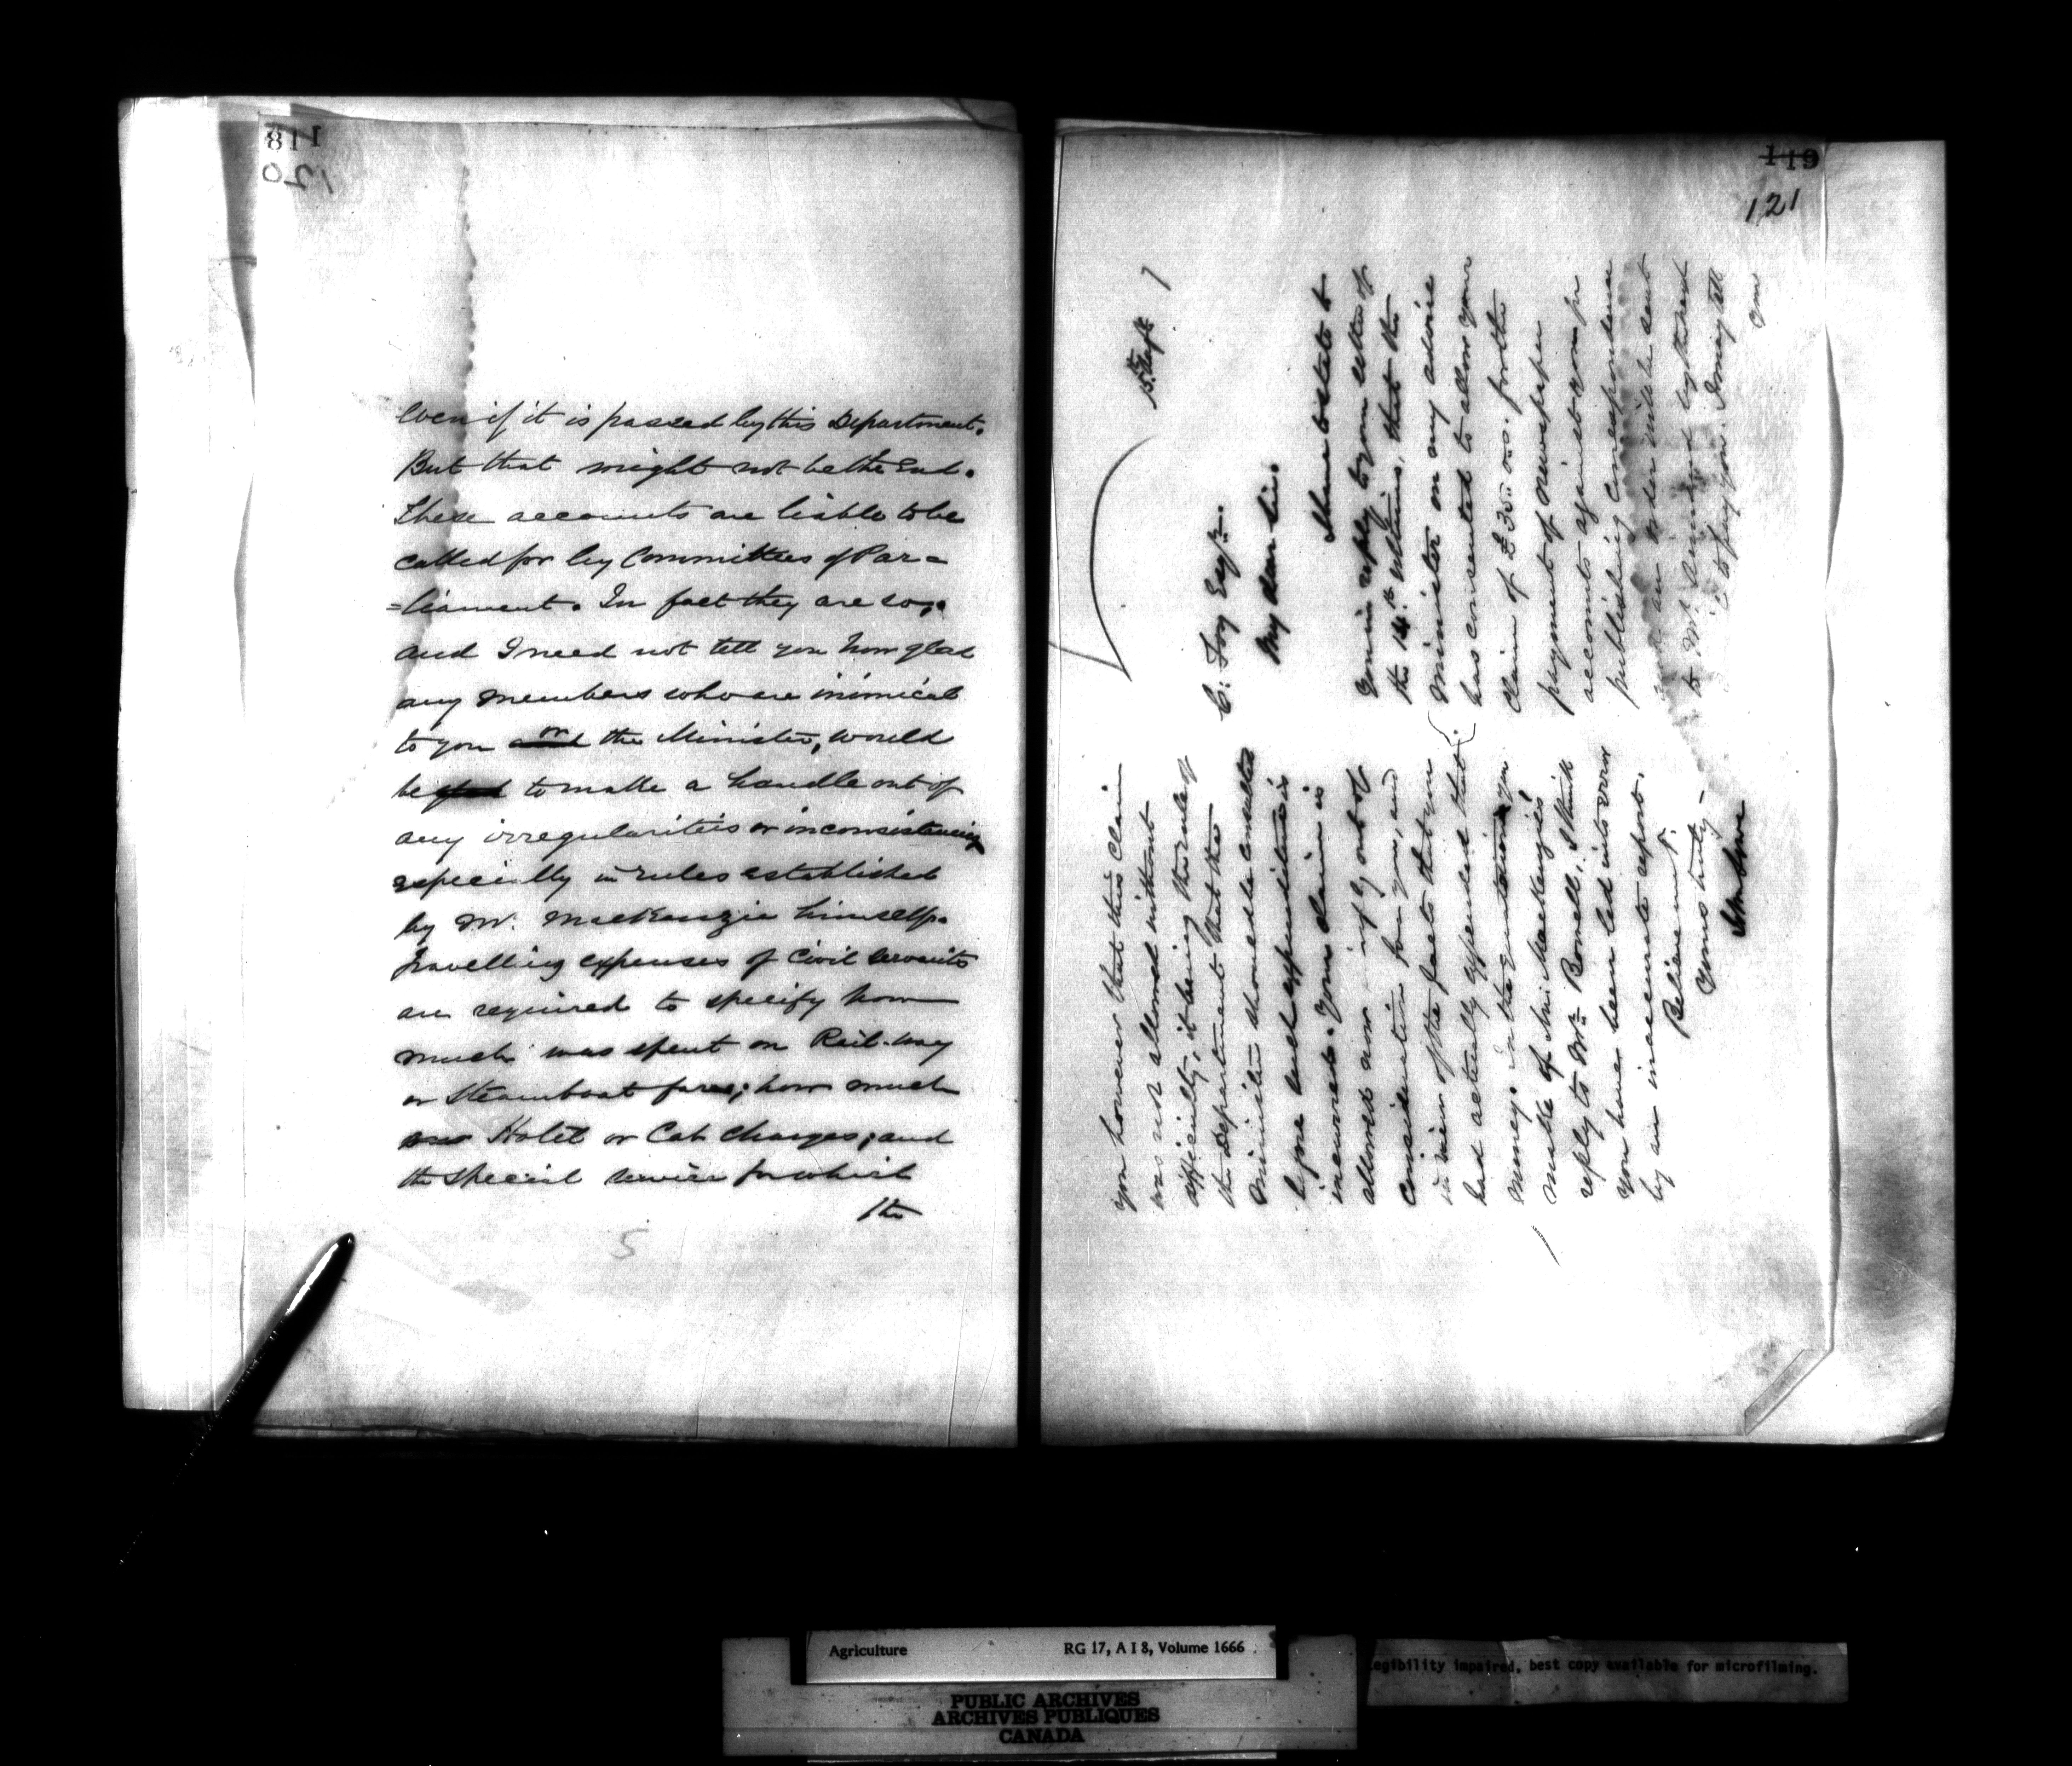 118
120
Even if it is passed by this Department.
But that might not be the End.
These accounts are liable to be
called for by Committees of Par=
=liament. In fact they are so,
and I need not tell you how glad
any members who are inimical
to you and or the Minister, would
be glad to make a handle out of
any irregularities or inconsistencies
especially in rules established
by Mr. MacKenzie himself.
Travelling expenses of Civil Servants
are required to specify how
much was spent on Rail-way
or Steamboat fares; how much
Hotel or Cab charges; and
the special service for which
the
5
119
121
15th Sept 7
C. Foy Esqr.
My dear Sir.
I have to state to
you in reply to your letter of
the 14th ultimo, that the
Minister on my advice
has consented to allow your
claim of £30.0.0. for the
payment of newspaper
accounts against you for
publishing correspondence
an order will be sent
to Mr. by the next
to pay you. I may tell
you
you however that this claim
was not allowed without
difficulty, it being the rule of
the Department that the
Minister should be consulted
before such expenditure is
incurred. Your claim is
allowed now out of
consideration for you, and
in view of the fact that you
had actually expended that
money. In the quotation you
make of Mr. Mackenzie's
reply to Mr. Bowell, I think
you have been led into error
by an inaccurate report.
Believe me
Yours truly
J Lowe
Agriculture RG 17, A I 8, Volume 1666
Legibility impaired, best copy available for microfilming.
PUBLIC ARCHIVES
ARCHIVES PUBLIQUES
CANADA